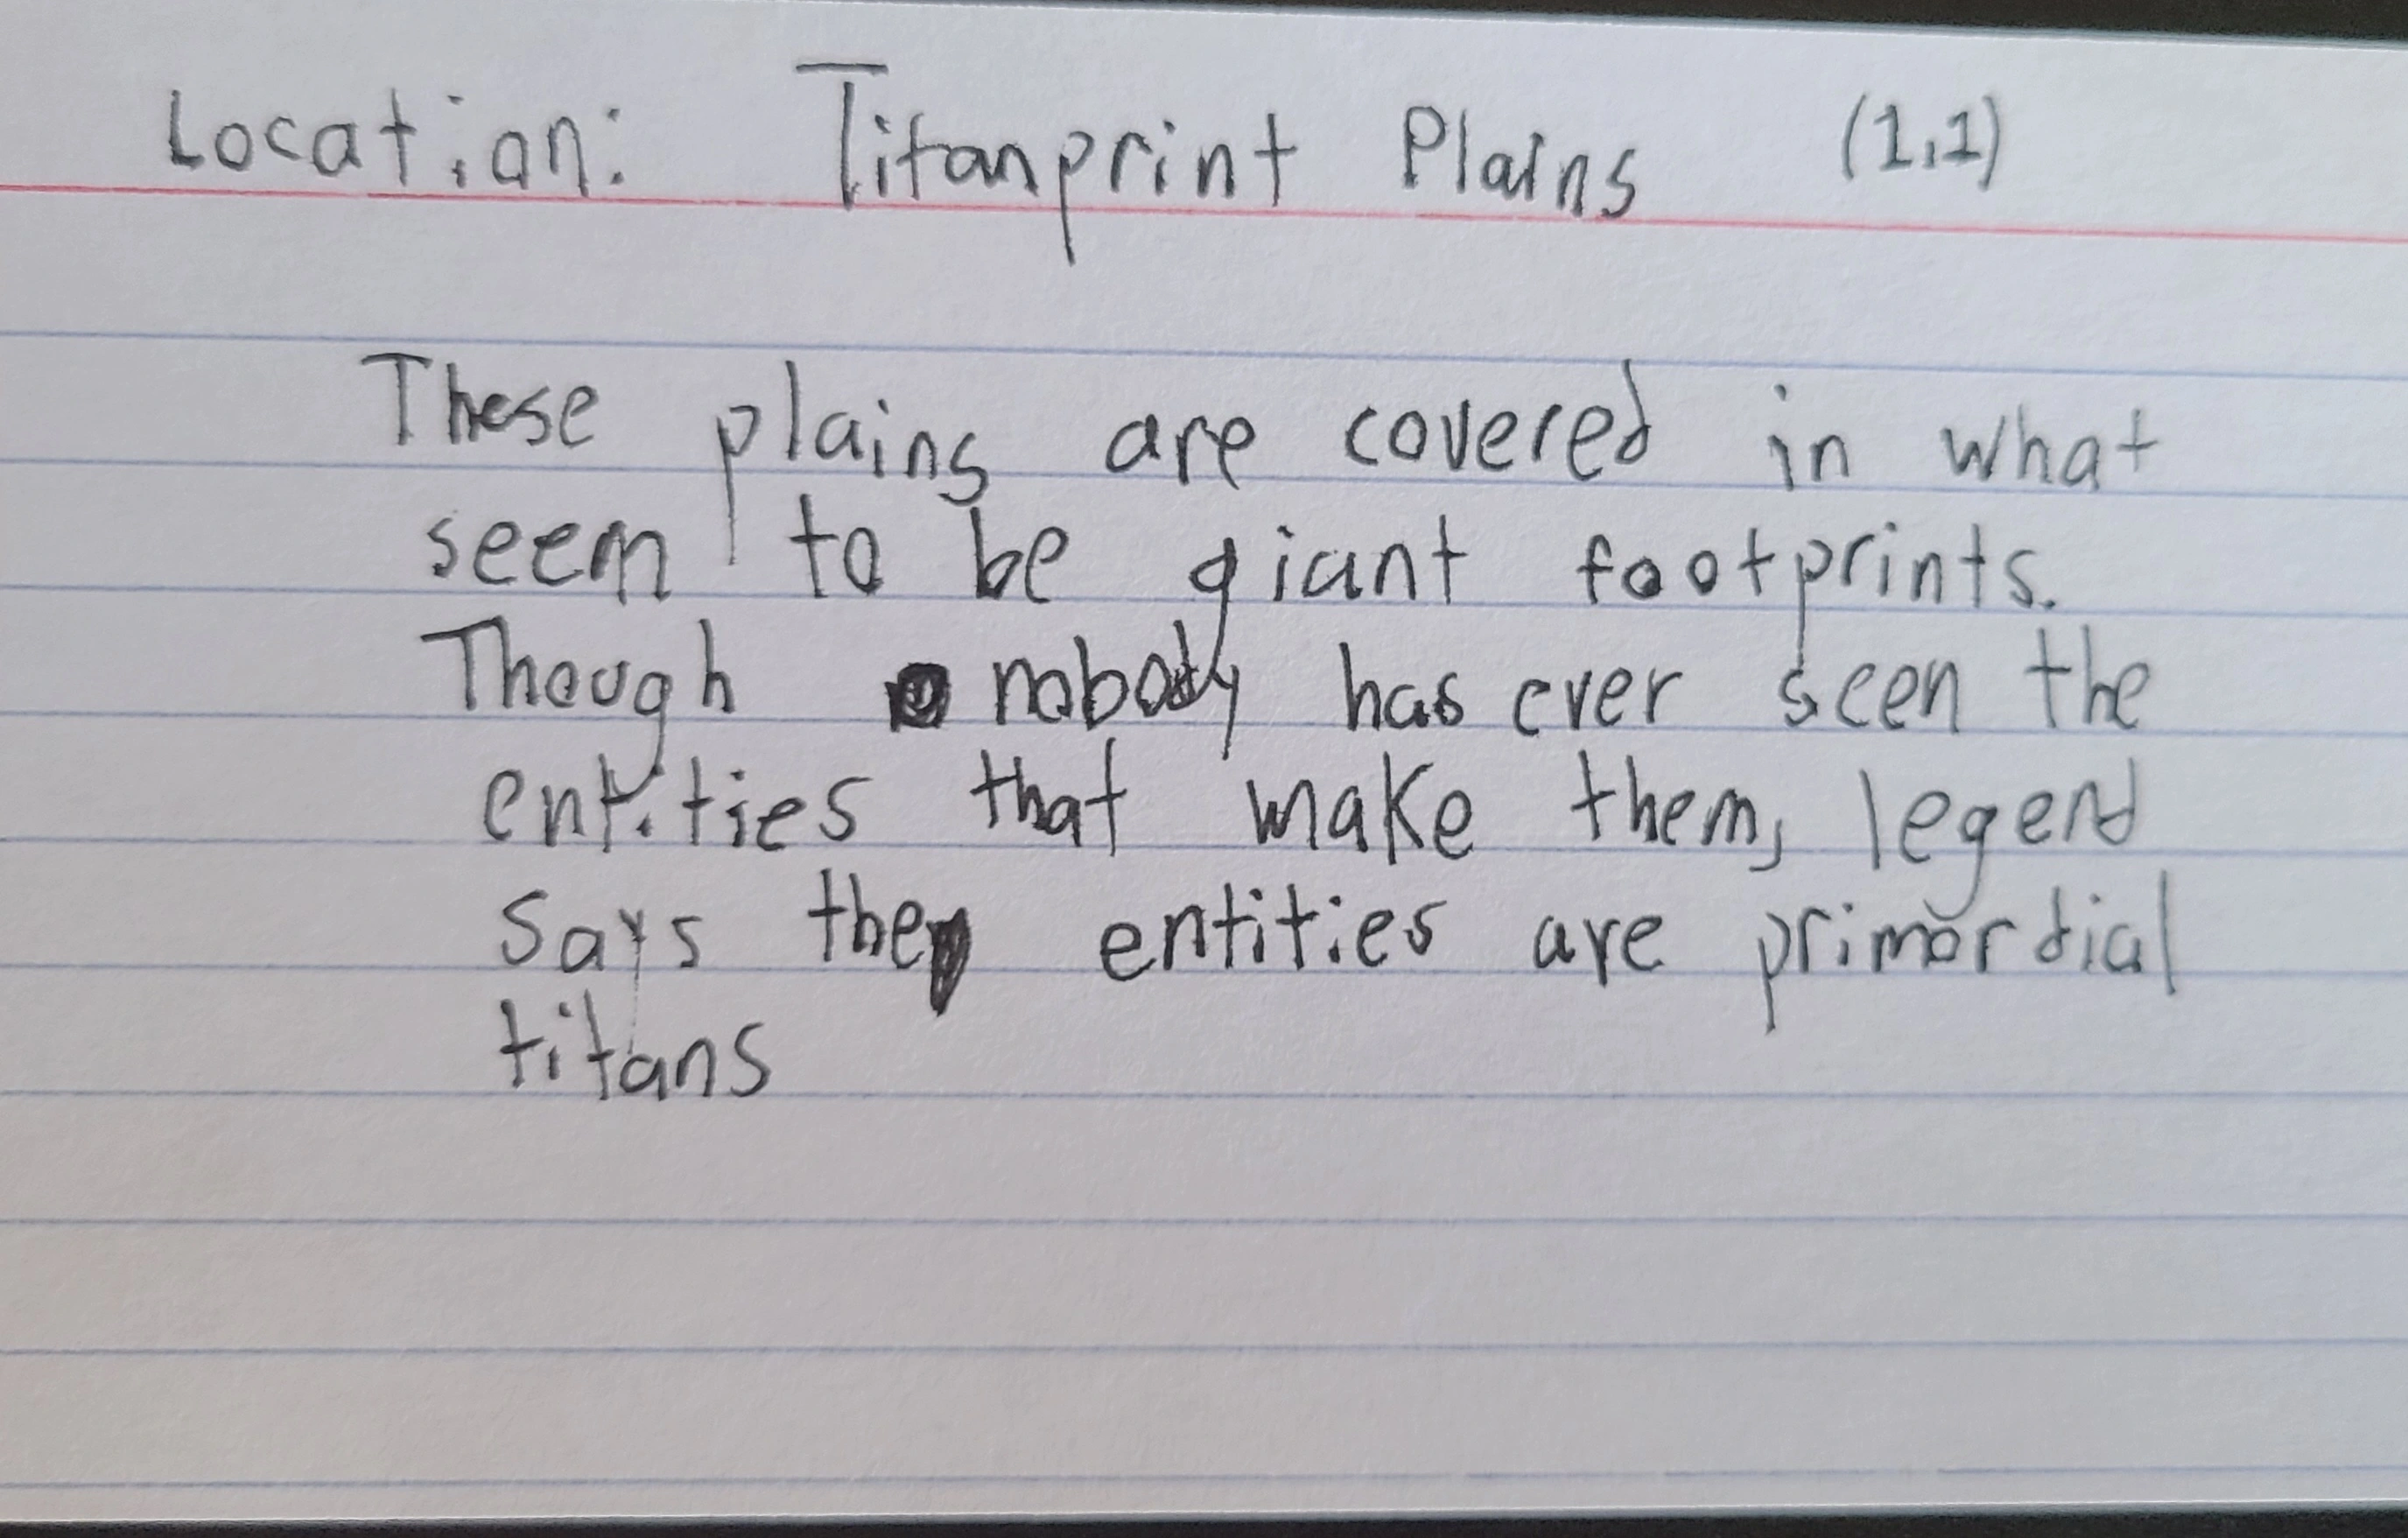 Location: Titanprint Plains (1,1)
These plains are covered in what
seem to be giant footprints.
Though nobody has ever seen the
entities that make them, legend
says the entities are primordial
titans